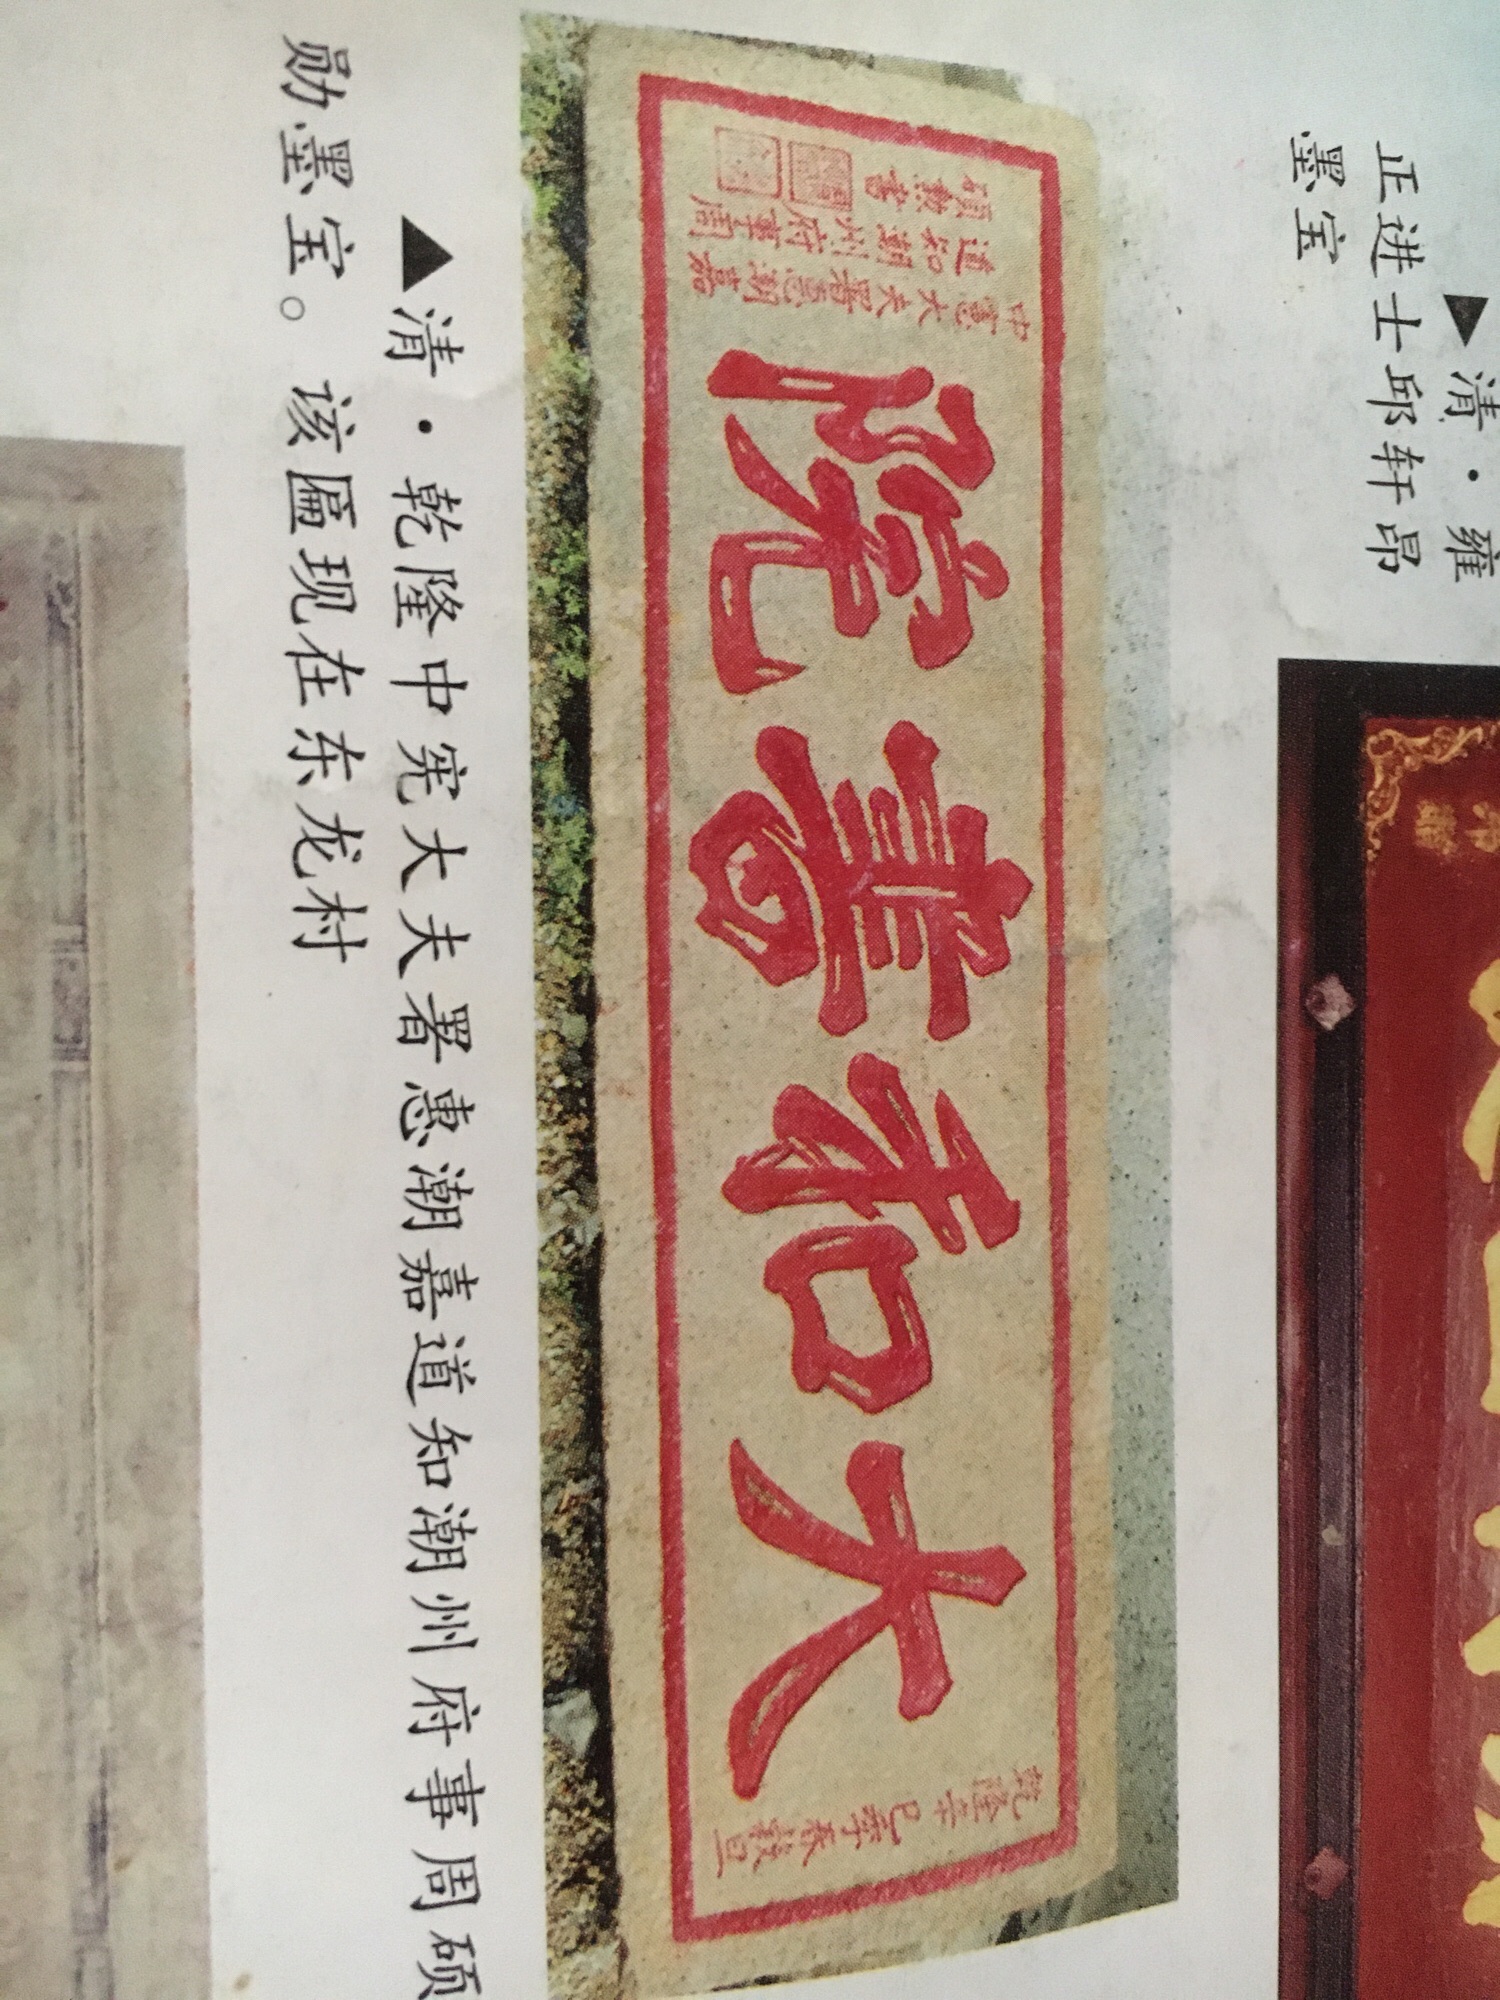 ▶清·雍
正进士邱轩昂
墨宝
大和書院
乾隆辛巳季春穀旦
中憲大夫署惠潮嘉
道知潮州府事周
碩勲書
▲清·乾隆中宪大夫署惠潮嘉道知潮州府事周硕
勋墨宝。该匾现在东龙村